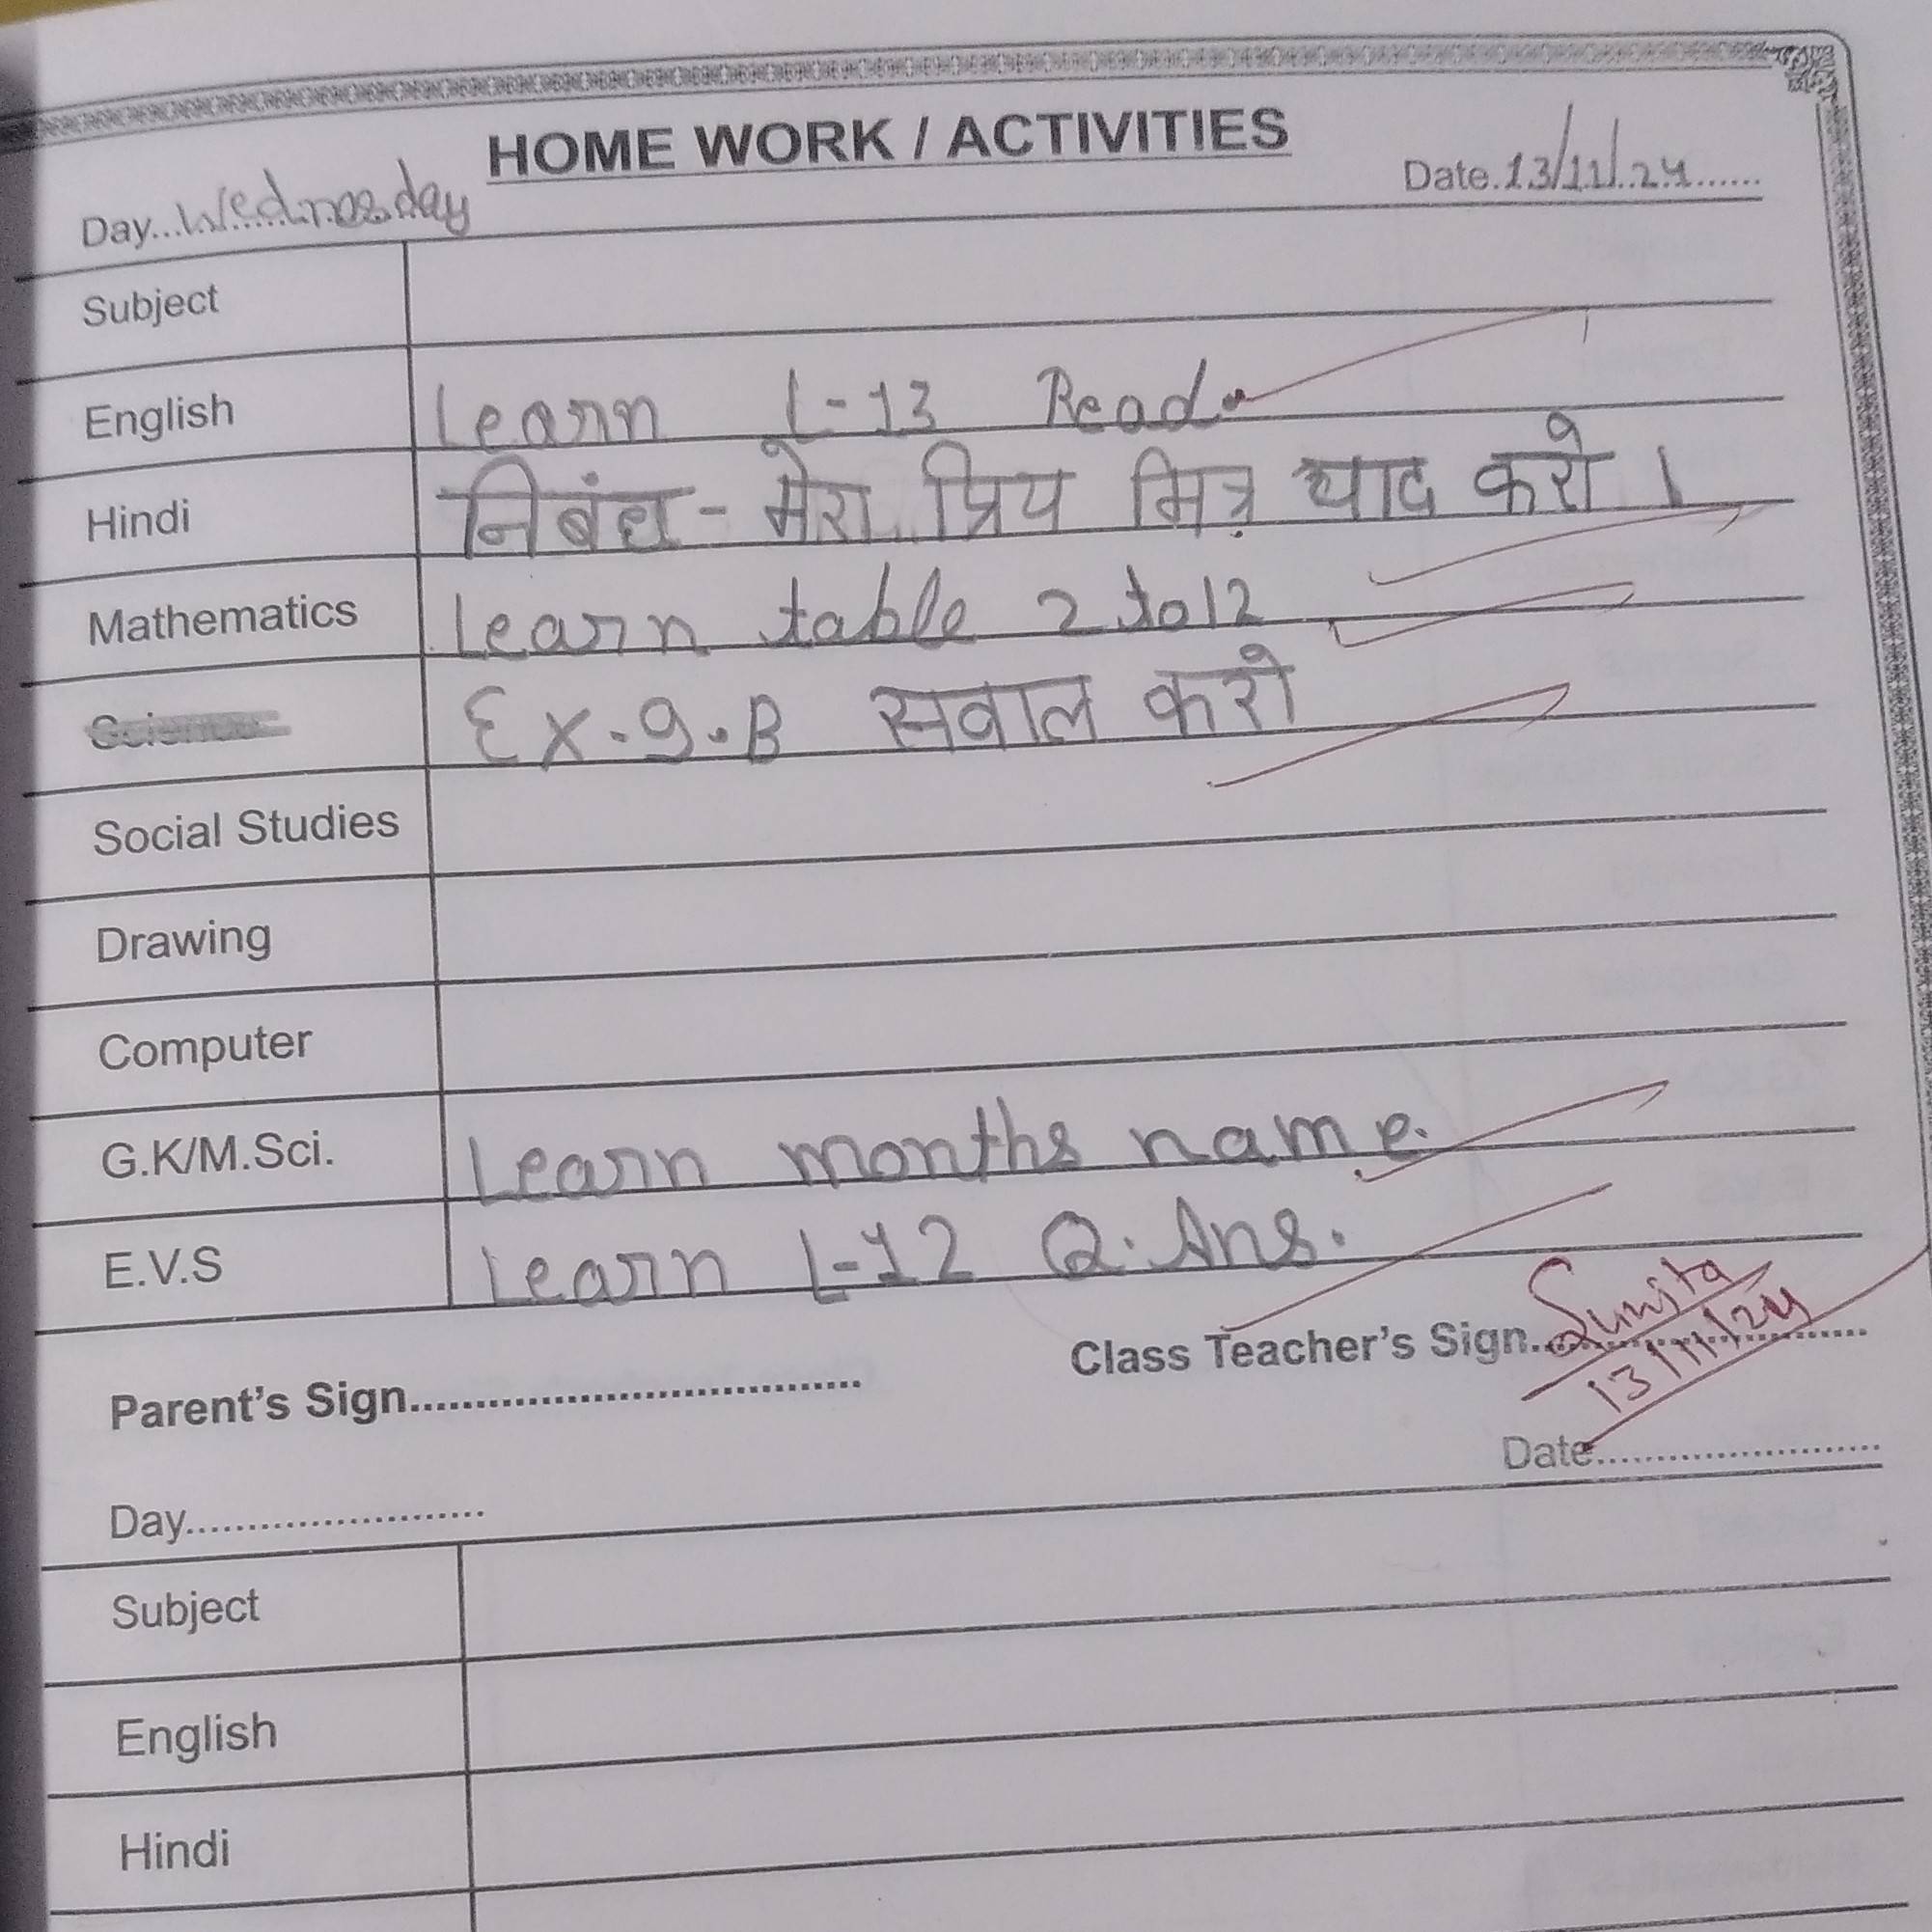 HOME WORK / ACTIVITIES
Day...Wednesday Date.13/11/24......
Subject
English Learn L-13 Read.
Hindi निबंध - मेरा प्रिय मित्र याद करो ।
Mathematics Learn table 2 to 12
Science Ex.9.B सवाल करो
Social Studies
Drawing
Computer
G.K/M.Sci. Learn months name.
E.V.S Learn L-12 Q. Ans.
Parent's Sign.................................... Class Teacher's Sign....Sunita
13/11/24
Day........................ Date........................
Subject
English
Hindi